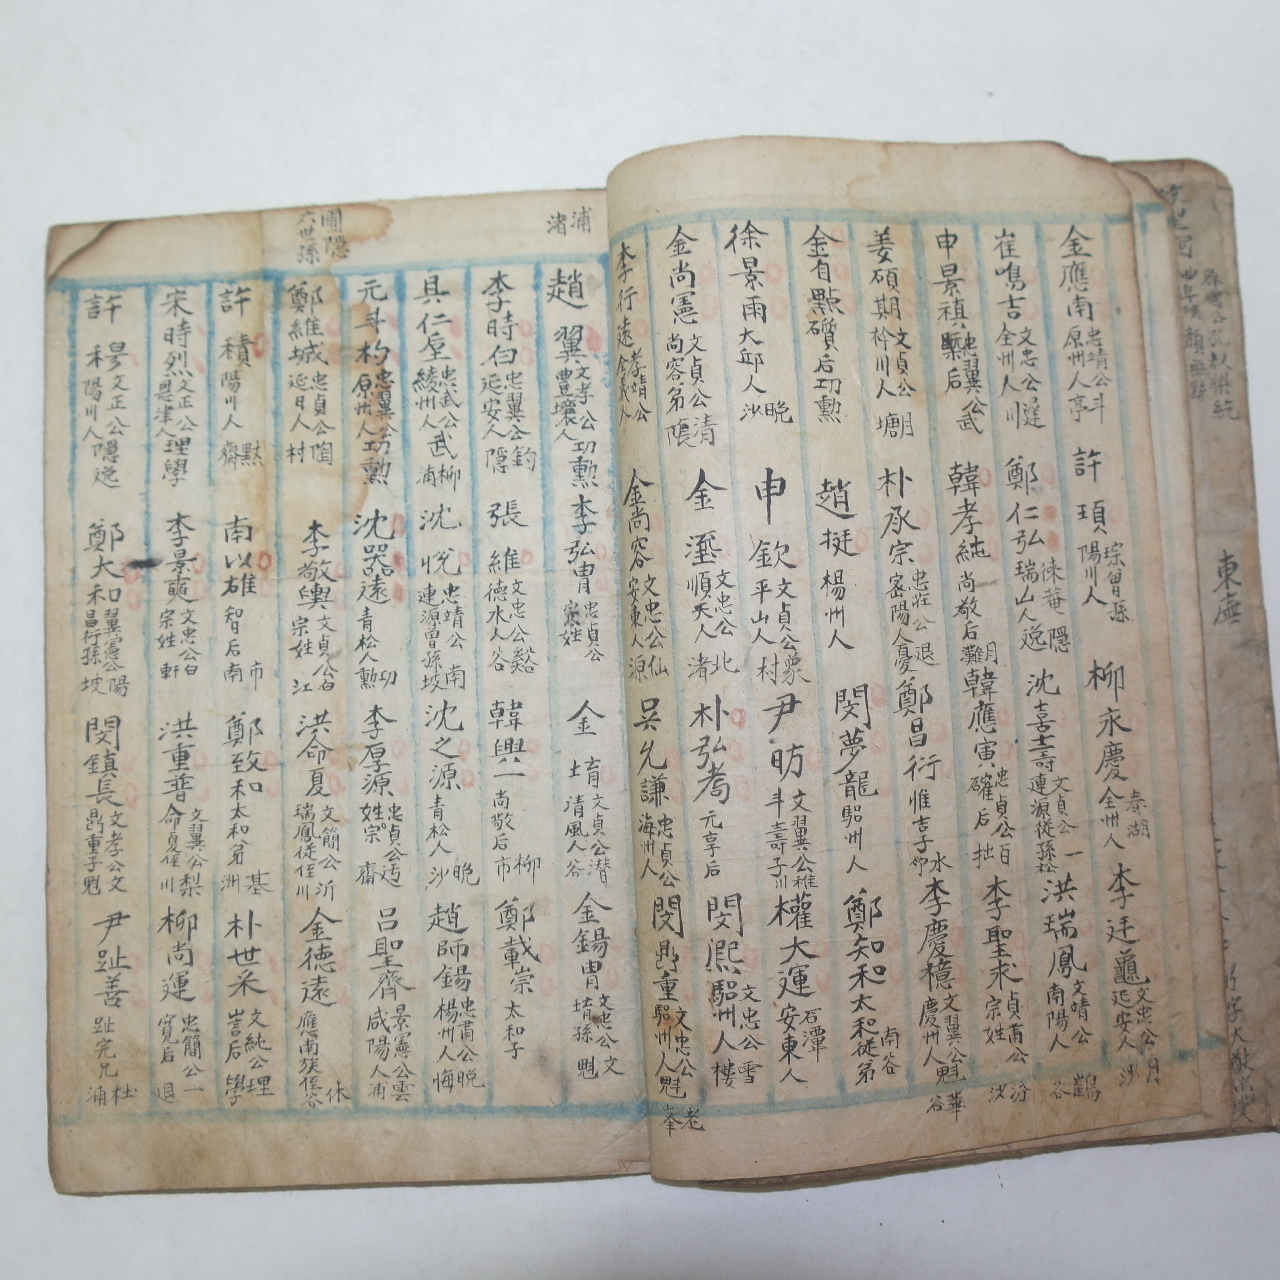 金應南 忠靖公 原州人 斗亭 許頊 琮曾孫 陽川人 柳永慶 春湖 全州人 李廷龜 文忠公 延安人 月沙
崔鳴吉 文忠公 全州人 遲川 鄭仁弘 徠菴 瑞山人 隱逸 沈喜壽 文貞公 連源從孫 一松 洪瑞鳳 文靖公 南陽人 鶴谷
申景禛 忠翼公 櫟后 武 韓孝純 尚敬后 月灘 韓應寅 忠貞公 確后 百拙 李聖求 貞肅公 宗姓 汾沙
姜碩期 文貞公 衿川人 月塘 朴承宗 忠莊公 密陽人 退憂 鄭昌衍 惟吉子 水竹 李慶檍 文翼公 慶州人 魁 華谷
金自點 礩后 功勲 趙挺 楊州人 閔夢龍 驪州人 鄭知和 南谷 太和從弟
徐景雨 大邱人 晩沙 申欽 文貞公 平山人 象村 尹昉 文翼公 斗壽子 稚川 權大運 石潭 安東人
金尚憲 文貞公 尚容弟 清陰 金瑬 文忠公 順天人 北渚 朴弘耈 元亨后 閔熙 文忠公 驪州人 雪樓
李行遠 孝靖公 全義人 金尚容 文忠公 安東人 仙源 吳允謙 忠貞公 海州人 閔鼎重 文忠公 驪州人 魁 老峯
浦渚
趙翼 文孝公 豊壤人 功勲 李弘冑 忠貞公 宗姓 金堉 文貞公 清風人 潜谷 金錫冑 文忠公 堉孫 文魁
李時白 忠翼公 延安人 釣隱 張維 文忠公 德水人 谿谷 韓興一 尚敬后 柳市 鄭載崇 太和子
具仁垕 忠武公 綾州人 武 柳浦 沈悅 忠靖公 連源曾孫 南坡 沈之源 青松人 晩沙 趙師錫 忠肅公 楊州人 晩悔
元斗杓 忠翼公 原州人 功勲 沈器遠 青松人 功勲 李厚源 忠貞公 宗姓 迃齋 呂聖齊 景憲公 咸陽人 雲浦
圃隱六世孫
鄭維城 忠貞公 延日人 陶村 李敬輿 文貞公 宗姓 白江 洪命夏 文簡公 瑞鳳從侄 沂川 金德遠 應南族侄 休谷
許積 陽川人 默齋 南以雄 智后 市南 鄭致和 太和弟 基洲 朴世采 文純公 訔后 理學
宋時烈 文正公 恩津人 理學 李景奭 文忠公 宗姓 白軒 洪重普 文翼公 命夏侄 梨川 柳尚運 忠簡公 寬后 一退
許穆 文正公 陽川人 隱逸 鄭太和 翼憲公 昌衍孫 陽坡 閔鎮長 文孝公 鼎重子 文魁 尹趾善 趾完兄 杜浦
東廡